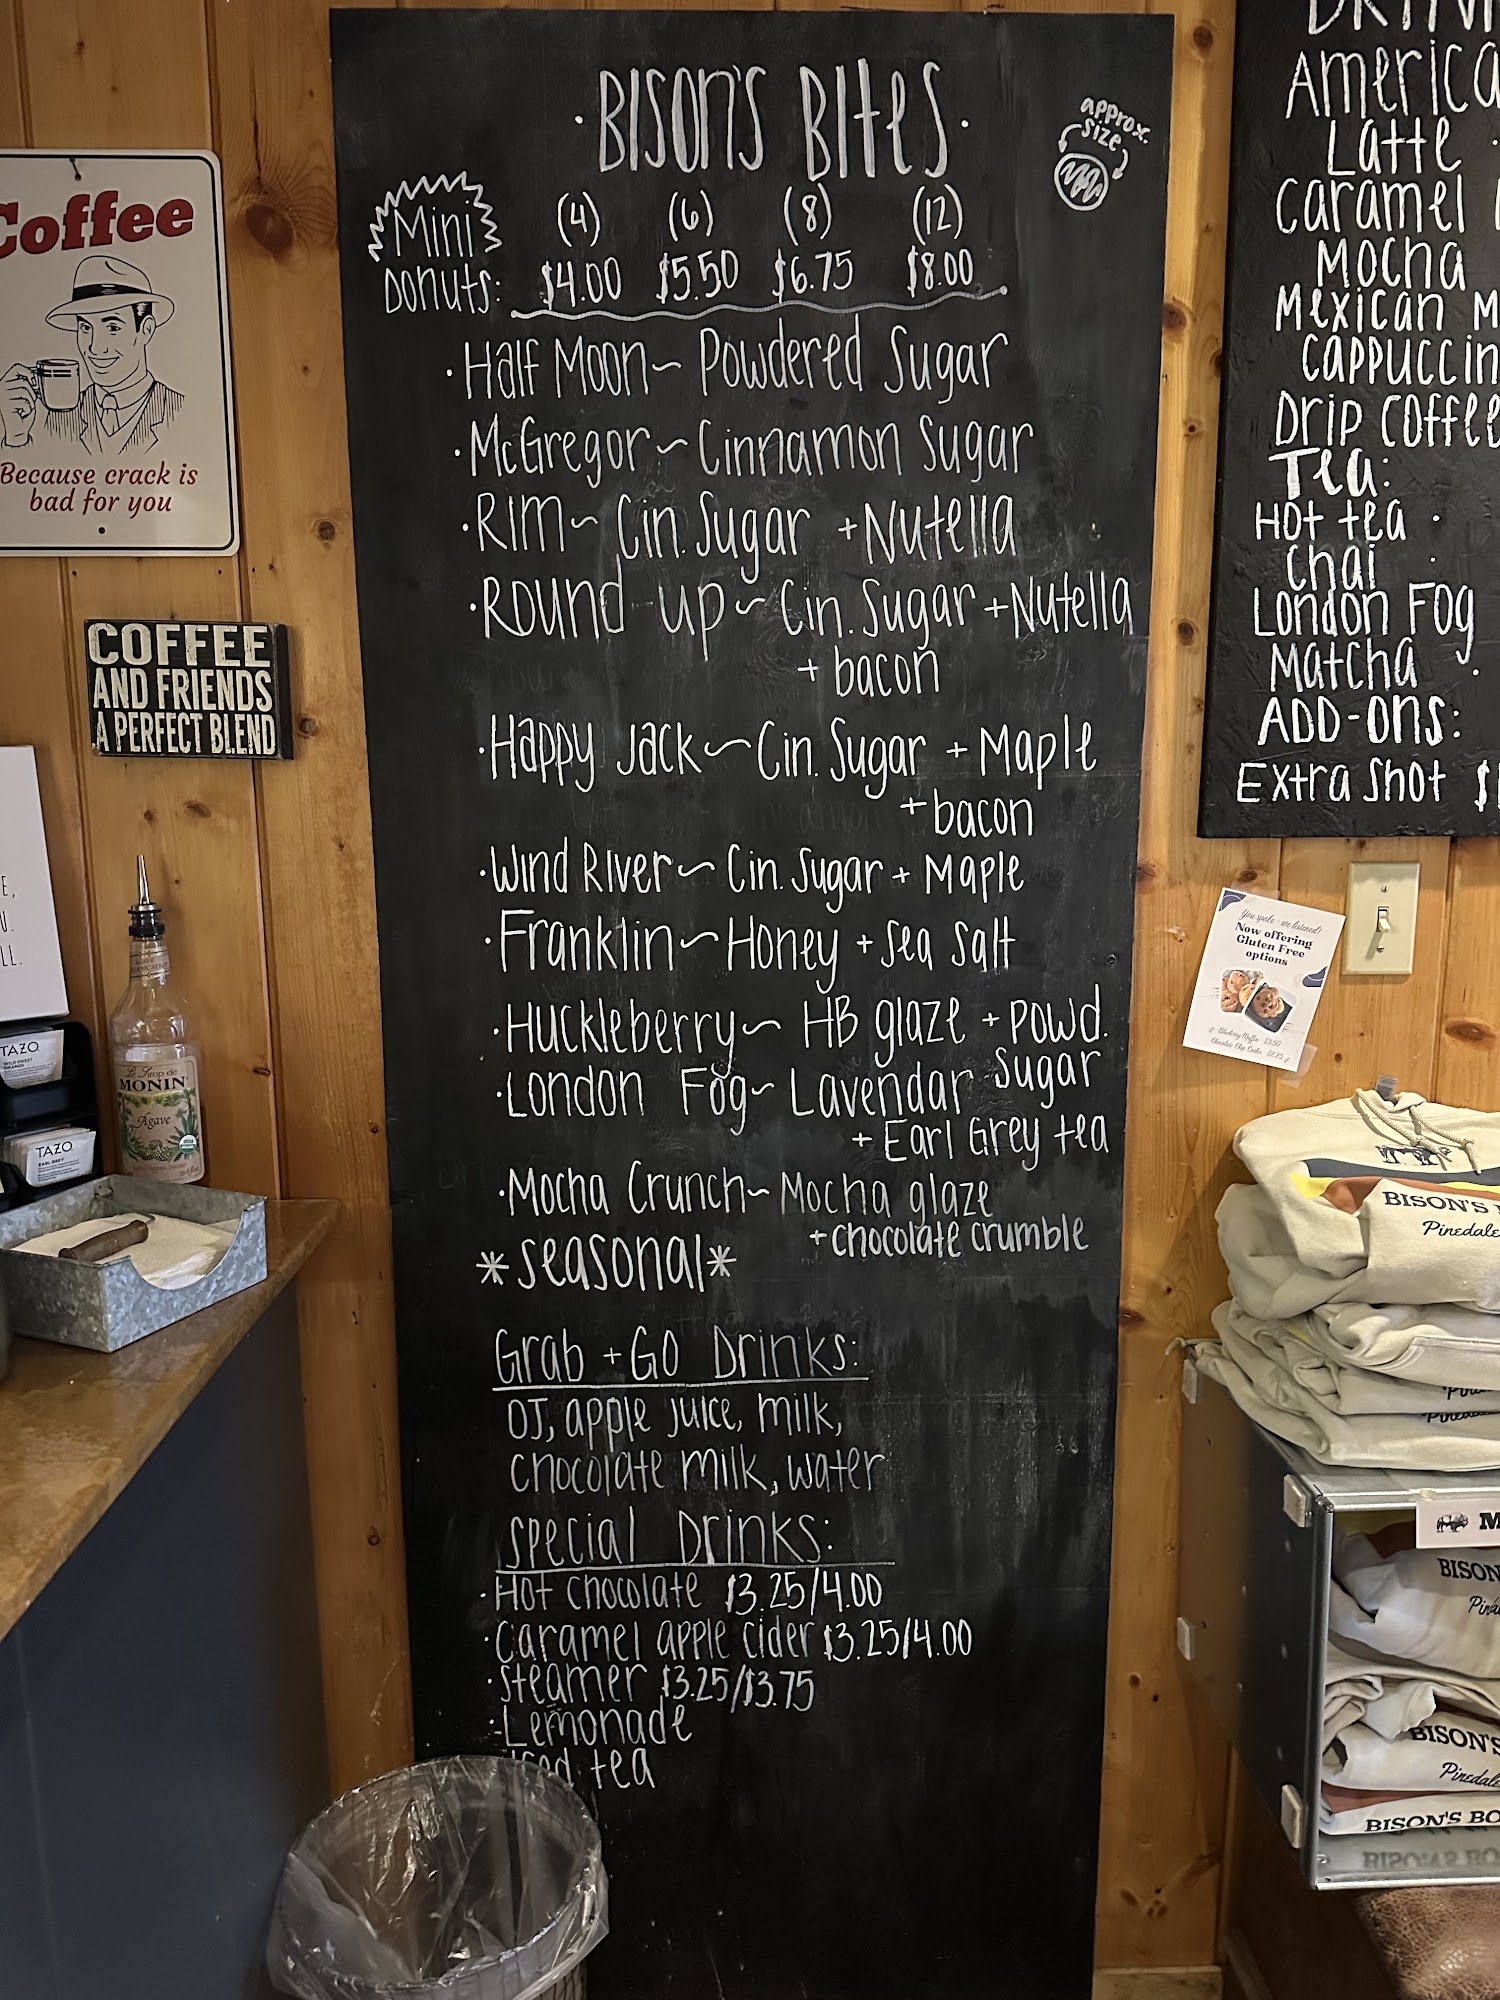 Coffee
Because crack is
bad for you
COFFEE
AND FRIENDS
A PERFECT BLEND
TAZO
TAZO
EARL GREY
Le Sirop de
MONIN
Agave
· BISON'S BITES ·
approx.
size
Mini
Donuts:
(4) (6) (8) (12)
$4.00 $5.50 $6.75 $8.00
· Half Moon~ Powdered Sugar
· McGregor~ Cinnamon Sugar
· Rim~ Cin. Sugar + Nutella
· Round-up~ Cin. Sugar + Nutella
+ bacon
· Happy Jack~ Cin. Sugar + Maple
+ bacon
· Wind River~ Cin. Sugar + Maple
· Franklin~ Honey + sea salt
· Huckleberry~ HB glaze + Powd.
Sugar
· London Fog~ Lavendar
+ Earl Grey tea
· Mocha Crunch~ Mocha glaze
+ chocolate crumble
*seasonal*
Grab + Go Drinks:
OJ, apple juice, milk,
chocolate milk, water
Special Drinks:
· Hot chocolate $3.25/4.00
· Caramel apple cider $3.25/4.00
· Steamer $3.25/$3.75
· Lemonade
Iced tea
America
Latte ·
Caramel
Mocha
Mexican M
Cappuccin
Drip Coffee
Tea:
Hot tea ·
Chai ·
London Fog
Matcha ·
ADD-ONS:
Extra Shot $
You spoke - we listened!
Now offering
Gluten Free
options
Blueberry Muffin $3.50
Chocolate Chip Cookie $2.25
BISON'S
Pinedale
Pinedale
M
BISON
BISON'S
Pinedale
BISON'S BO